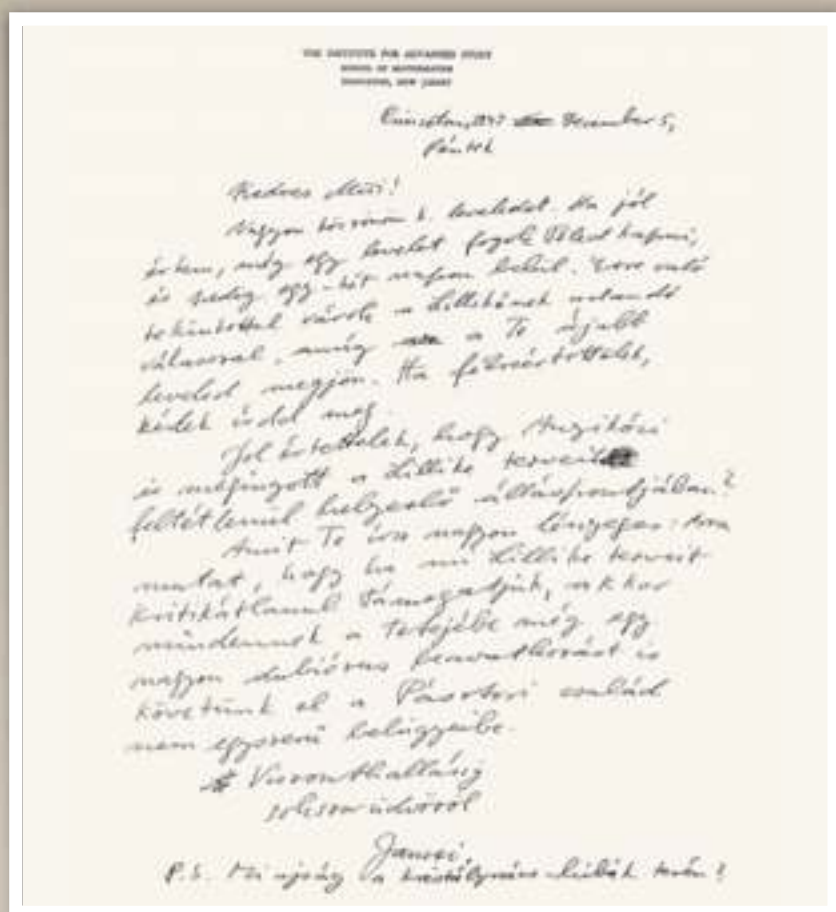 THE INSTITUTE FOR ADVANCED STUDY
SCHOOL OF MATHEMATICS
PRINCETON, NEW JERSEY
Princeton, 1947 December 5,
Péntek
Kedves Müci!
Nagyon köszönöm leveledet. Ha jól
értem, még egy levelet fogok Tőled kapni,
és pedig egy-két napon belül. Erre való
tekintettel várok a Lillikének
válasszal, amíg a Te újabb
leveled megjön. Ha félreértettelek,
kérlek írd meg.
Jól értettelek, hogy
is megingott a Lillike terveit
feltétlenül helyeslő álláspontjában?
Amit Te írsz nagyon lényeges. Arra
mutat, hogy ha mi Lillike terveit
kritikátlanul támogatjuk, akkor
mindennek a tetejébe még egy
nagyon dubiózus beavatkozást is
követünk el a család
nem egyszerű belügyeibe.
Viszonthallásig
sokszor üdvözöl
Jancsi
P.S. Mi ujság a terén?